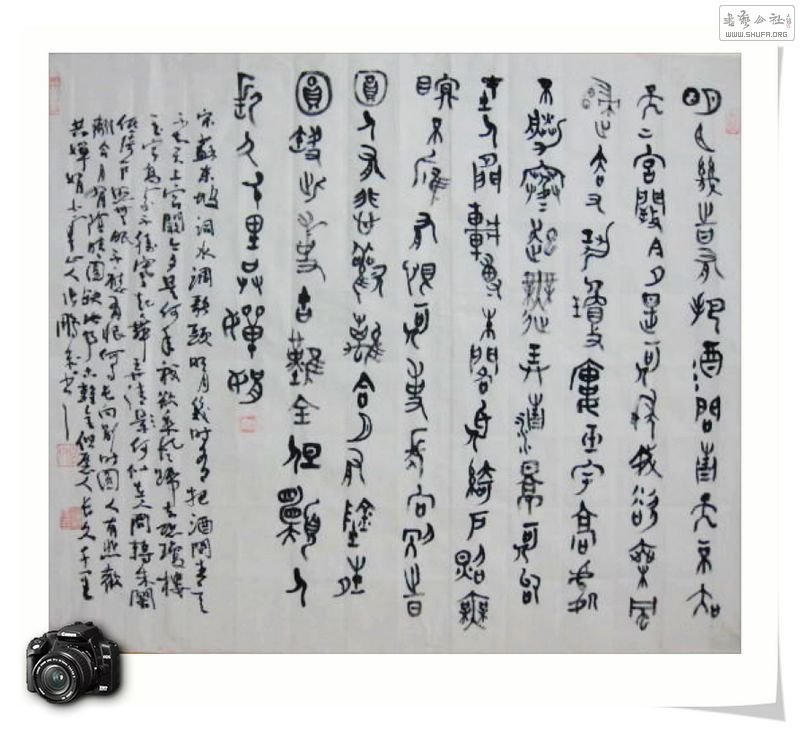 書藝公社
WWW.SHUFA.ORG
明月幾時有把酒問青天不知
天上宮闕今夕是何年我欲乘風
歸去又恐瓊樓玉宇高處
不勝寒起舞弄清影何似
在人間轉朱閣低綺戶照無
眠不應有恨何事長向別時
圓人有悲歡離合月有陰晴
圓缺此事古難全但願人
長久千里共嬋娟
宋蘇東坡詞水調歌頭明月幾時有把酒問青天
不知天上宮闕今夕是何年我欲乘風歸去恐瓊樓
玉宇高處不勝寒起舞弄清影何似在人間轉朱閣
低綺戶照無眠不應有恨何事長向別時圓人有悲歡
離合月有陰晴圓缺此事古難全但願人長久千里
共嬋娟 山人 書
Canon